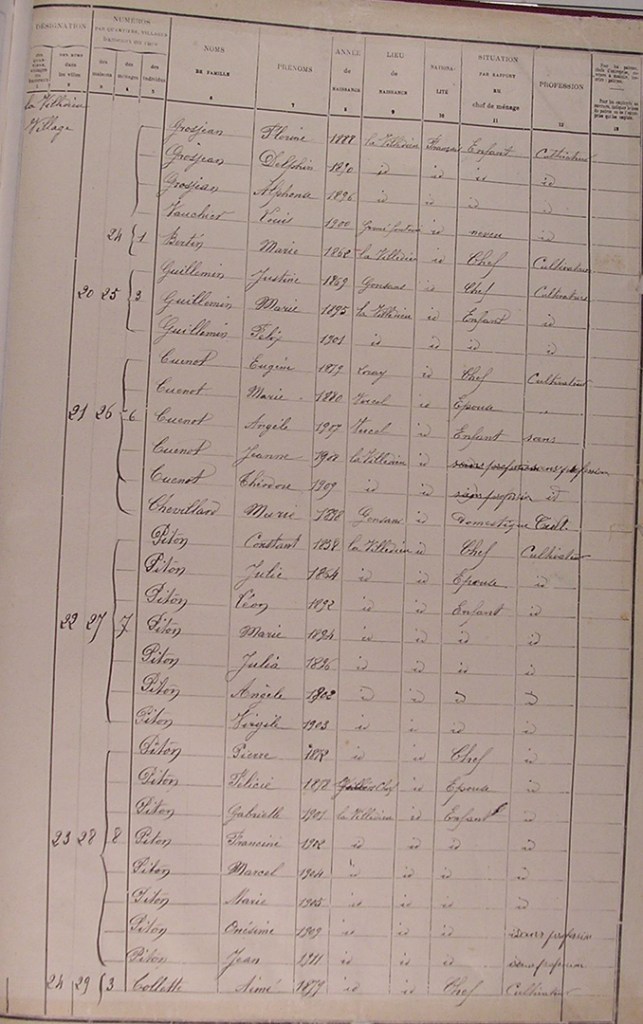 DÉSIGNATION
NUMÉROS
PAR QUARTIERS, VILLAGES
NOMS DE FAMILLE
PRÉNOMS
ANNÉE de NAISSANCE
LIEU de NAISSANCE
NATIONALITÉ
SITUATION PAR RAPPORT AU chef de ménage
PROFESSION
la Villedieu
Village
Grosjean Florine 1888 la Villedieu Enfant Cultivateur
Grosjean Delphin 1890 id id id id
Grosjean Alphonse 1896 id id id id
Vauchier Louis 1900 id neveu id
24 1 Bertin Marie 1862 la Villedieu id Chef Cultivateur
20 25 3 Guillemin Justine 1869 Gonsans id Chef Cultivateur
Guillemin Marie 1895 la Villedieu id Enfant id
Guillemin Félix 1901 id id id id
Cuenot Eugène 1879 id Chef Cultivateur
21 26 6 Cuenot Marie 1880 Vercel id Epouse
Cuenot Angèle 1907 Vercel id Enfant sans
Cuenot Jeanne 1908 la Villedieu id sans profession sans profession
Cuenot Théodore 1909 id id sans profession id
Chevillard Marie 1898 Gonsans id Domestique Cult.
Piton Constant 1858 la Villedieu id Chef Cultivateur
Piton Julie 1864 id id Epouse id
Piton Léon 1892 id id Enfant id
22 27 7 Piton Marie 1894 id id id id
Piton Julia 1896 id id id id
Piton Angèle 1902 id id id id
Piton Virgile 1903 id id id id
Piton Pierre id id Chef id
Piton Félicie 1878 id Epouse id
Piton Gabrielle 1901 la Villedieu id Enfant id
23 28 8 Piton Francine 1902 id id id id
Piton Marcel 1904 id id id id
Piton Marie 1905 id id id id
Piton Onésime 1909 id id id sans profession
Piton Jean 1911 id id id sans profession
24 29 3 Collette Aimé 1879 id id Chef Cultivateur